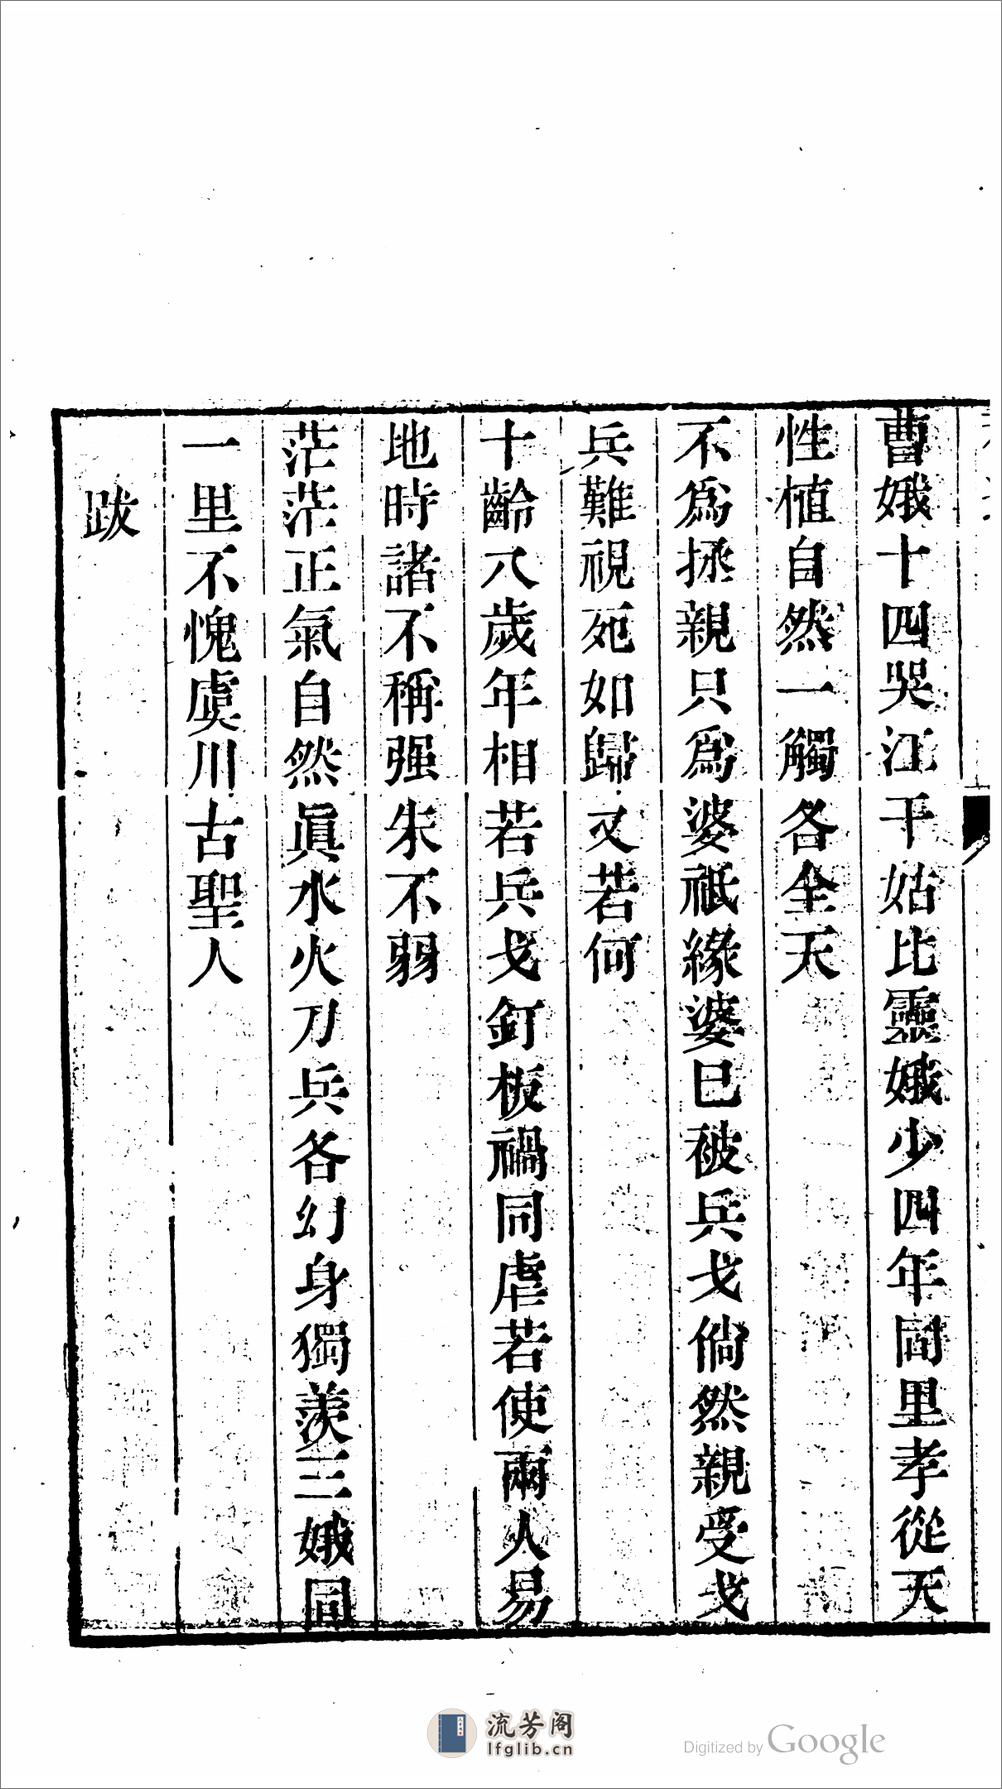 曹娥十四哭江干姑比靈娥少四年同里孝從天
性植自然一觸各全天
不爲拯親只爲婆祇緣婆已被兵戈倘然親受戈
兵難視死如歸又若何
十齡八歲年相若兵戈釘板禍同虐若使兩人易
地時諸不稱强朱不弱
茫茫正氣自然眞水火刀兵各幻身獨羨三娥同
一里不愧虞川古聖人
跋
流芳阁
lfglib.cn
Digitized by Google